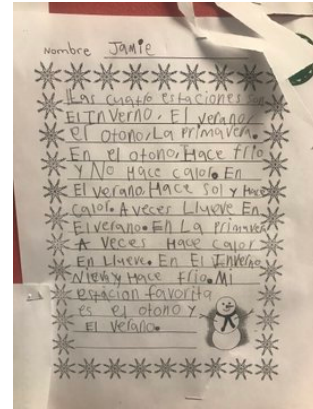 Nombre Jamie
Las cuatro estaciones son
El Inverno, El verano,
el otono, La primavera.
En el otono, Hace frio
Y No Hace calor. En
El verano, Hace sol y Hace
calor. A veces Llueve En
El verano. En La primavera
A veces Hace calor
En Llueve. En El Inverno
Nieva y Hace frio. Mi
estacion favorita
es el otono y
El verano.